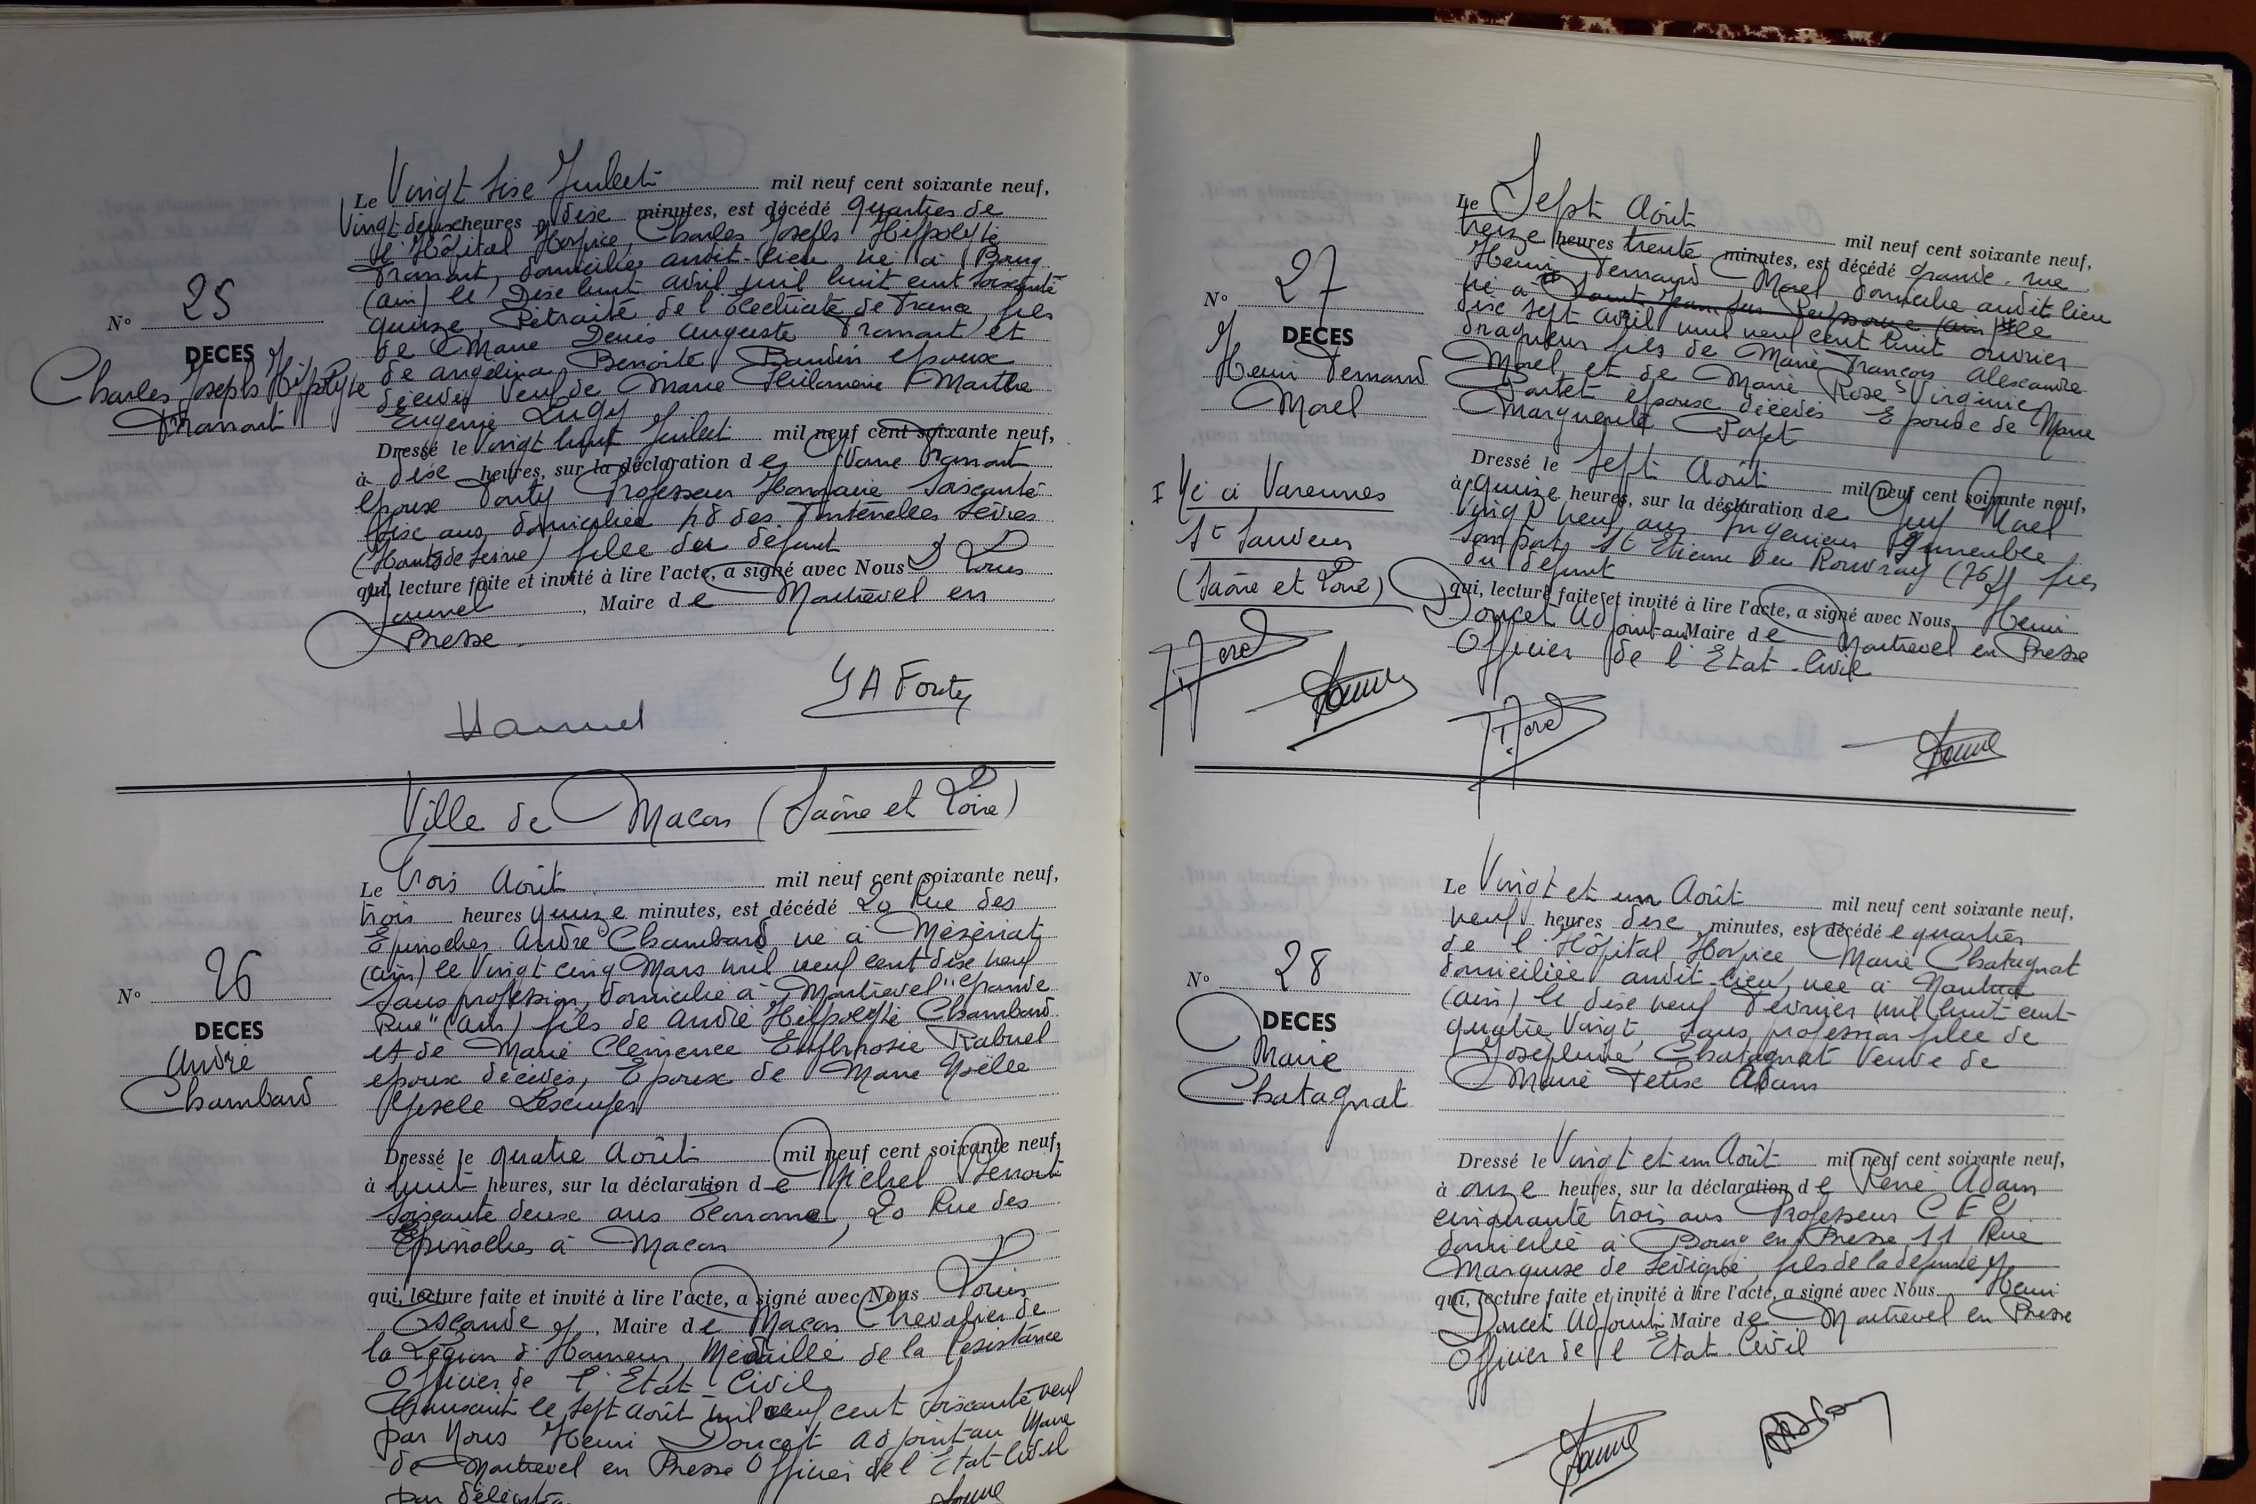 Le Vingt sise Juillet mil neuf cent soixante neuf,
Vingt deux heures dise minutes, est décédé quartier de
l'Hôpital Hospice, Charles Joseph Hippolyte
domicilié audit lieu, né à Bourg
(ain) le Dise huit avril mil huit cent soisante
quinze, Retraité de l'Electricité de France, fils
de Marie Denis auguste et
de angelina Benoite Baudin epoux
décédés Veuf de Marie Philomène Marthe
Eugenie
N° 25
DECES
Charles Joseph Hippolyte
Dressé le Vingt huit Juillet mil neuf cent soixante neuf,
à dise heures, sur la déclaration de
épouse Fonty Professeur Honoraire Soisante
sise ans, domiciliée des Fontenelles Sèvres
(Hauts de Seine) fille du défunt
qui, lecture faite et invité à lire l'acte, a signé avec Nous Louis
, Maire de Montrevel en
Bresse.
Y A Fonty
Ville de Macon (Saône et Loire)
Le trois Août mil neuf cent soixante neuf,
trois heures quinze minutes, est décédé 20 Rue des
Epinoches André Chambard né à Mézériat
(ain) le Vingt cinq Mars mil neuf cent dise neuf
Sans profession, domicilié à Montrevel "Grande
Rue" (Ain) fils de André Hippolyte Chambard
et de Marie Clémence Euphrosie Rabuel
époux décédés, Epoux de Marie Noëlle
Gisèle
N° 26
DECES
André
Chambard
Dressé le quatre Août mil neuf cent soixante neuf,
à huit heures, sur la déclaration de Michel
soisante deux ans Econome, 20 Rue des
Epinoches à Macon
qui, lecture faite et invité à lire l'acte, a signé avec Nous Louis
Escande, Maire de Macon Chevalier de
la Légion d'Honneur, Médaillé de la Résistance
Officier de l'Etat-Civil
Transcrit le Sept Août mil neuf cent Soisante neuf
par Nous Henri Doucet adjoint au Maire
de Montrevel en Bresse Officier de l'Etat-Civil
par délégation
Le Sept Août mil neuf cent soixante neuf,
treize heures trente minutes, est décédé grande rue
Henri Fernand Morel domicilié audit lieu
né à le
dise sept avril mil neuf cent huit ouvrier
dragueur fils de Marie François Alexandre
Morel et de Marie Rose Virginie
époux décédés Epoux de Marie
Marguerite
N° 27
DECES
Henri Fernand
Morel
Dressé le Sept Août mil neuf cent soixante neuf,
à quinze heures, sur la déclaration de Morel
Vingt neuf ans Ingénieur Immeuble
St Etienne du Rouvray (76) fils
du défunt
qui, lecture faite et invité à lire l'acte, a signé avec Nous Henri
Doucet Adjoint au Maire de Montrevel en Bresse
Officier de l'Etat-Civil
I Né à Varennes
St Sauveur
(Saône et Loire)
Le Vingt et un Août mil neuf cent soixante neuf,
neuf heures dise minutes, est décédée quartier
de l'Hôpital Hospice Marie Chatagnat
domiciliée audit lieu, née à
(ain) le dise neuf Fevrier mil huit cent
quatre Vingt, Sans profession fille de
Joséphine Chatagnat Veuve de
Marie Felise Adam
N° 28
DECES
Marie
Chatagnat
Dressé le Vingt et un Août mil neuf cent soixante neuf,
à onze heures, sur la déclaration de René Adam
cinquante trois ans Professeur C E G
domicilié à Bourg en Bresse 11 Rue
Marquise de Sévigné, fils de la defunte
qui, lecture faite et invité à lire l'acte, a signé avec Nous Henri
Doucet Adjoint Maire de Montrevel en Bresse
Officier de l'Etat-Civil